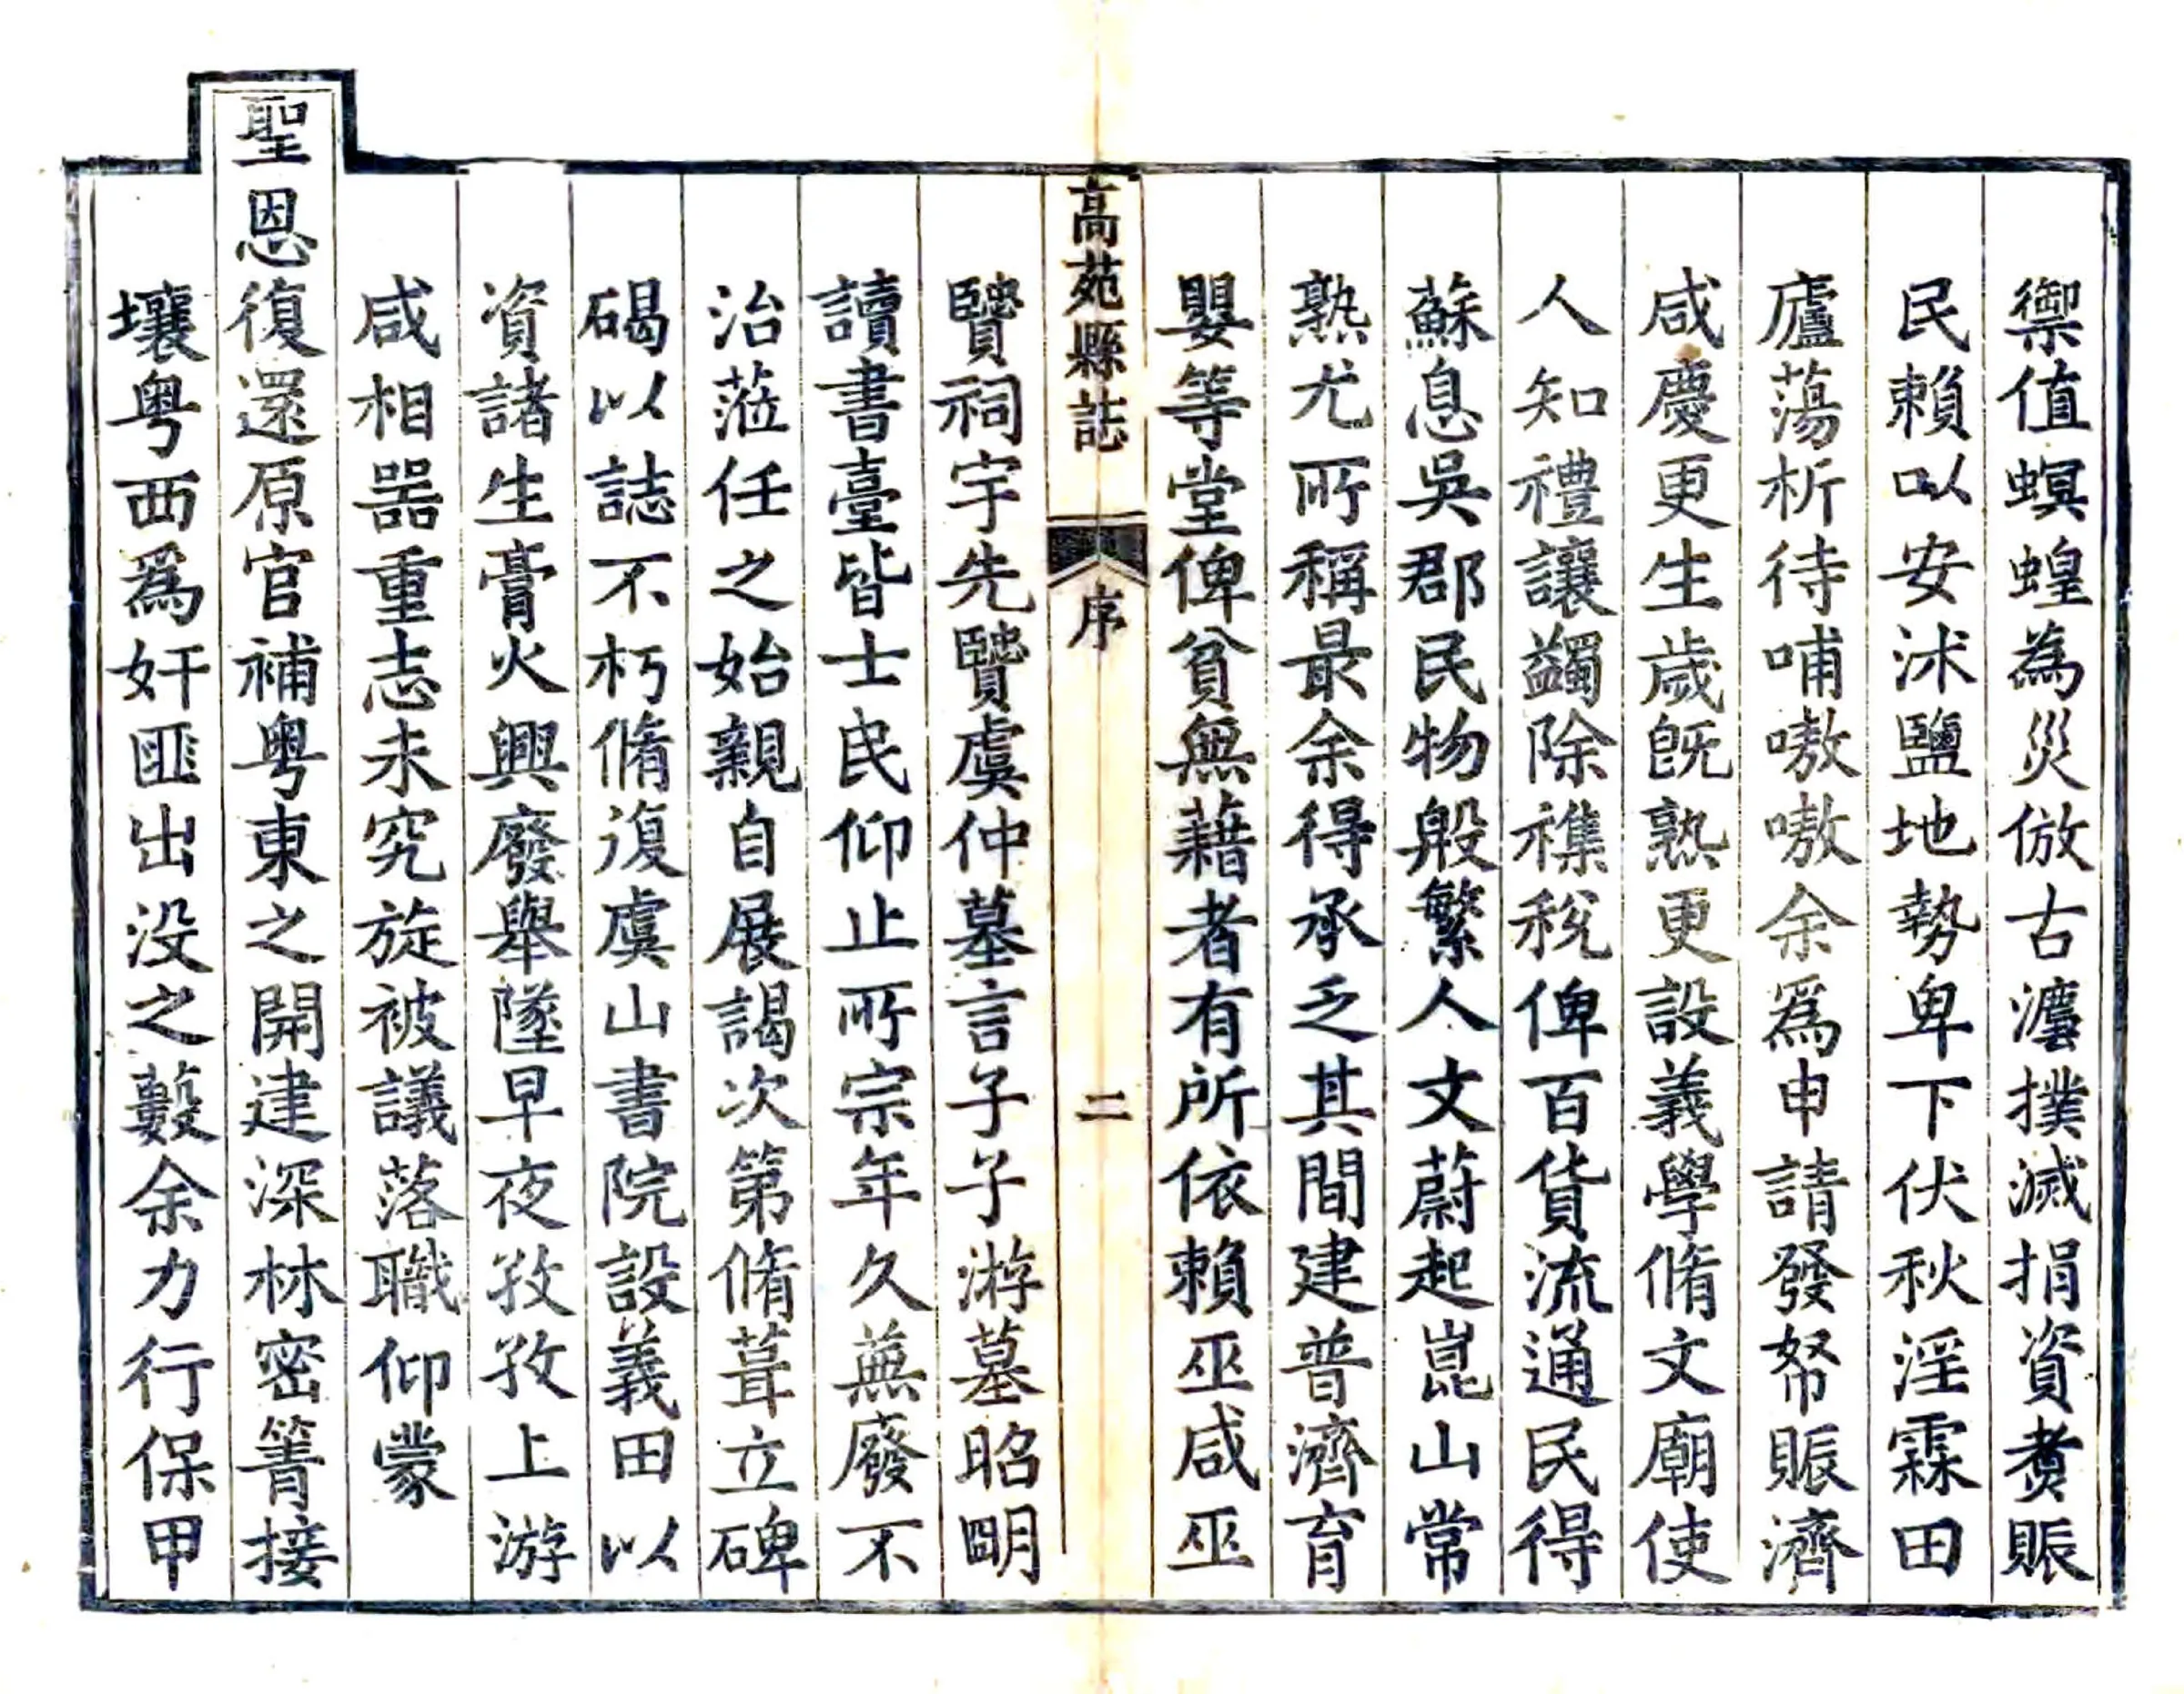 禦值螟蝗為災倣古瀍撲滅捐資煑賑
民賴㕥安沭鹽地勢卑下伏秋淫霖田
廬蕩析待哺嗷嗷余爲申請發帑賑濟
咸慶更生歲旣熟更設義學脩文廟使
人知禮讓蠲除襍稅俾百貨流通民得
蘇息吳郡民物殷繁人文蔚起崑山常
熟尤所稱最余得承乏其間建普濟育
嬰等堂俾貧無藉者有所依賴巫咸巫
高苑縣誌
序
二
賢祠宇先賢虞仲墓言子子游墓昭明
讀書臺皆士民仰止所宗年久蕪廢不
治蒞任之始親自展謁次第脩葺立碑
碣以誌不朽脩復虞山書院設義田以
資諸生膏火興廢舉墜早夜孜孜上游
咸相器重志未究旋被議落職仰蒙
聖恩復還原官補粤東之開建深林密箐接
壤粤西爲奸匪出沒之藪余力行保甲